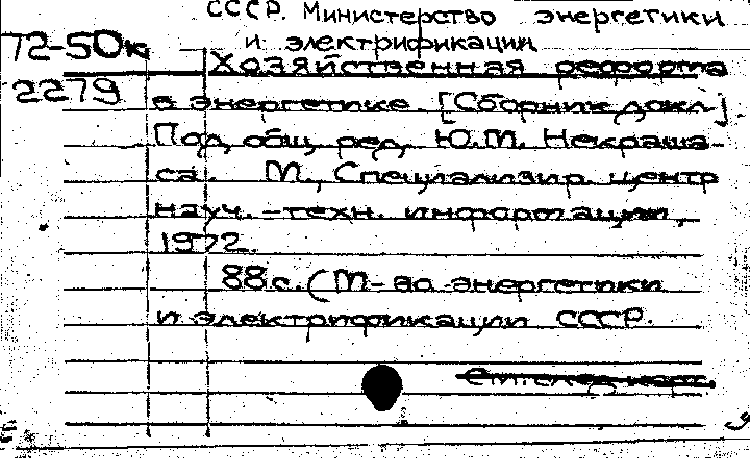 СССР. Министерство энергетики
и электрификации
72-50к
Хозяйственная реформа
2279
в энергетике [Сборник докл.]
Под общ. ред. Ю.М. Некраша-
са. М., Специализир. центр
науч.-техн. информации,
1972.
88 с. (М-во энергетики
и электрификации СССР.